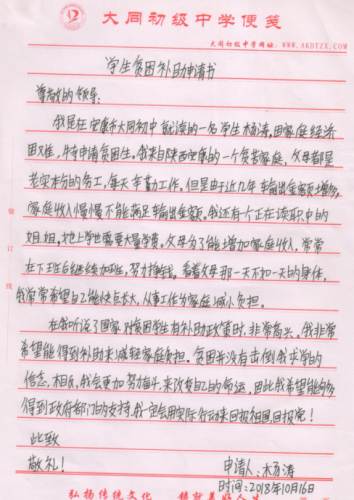 大同初级中学便笺
大同初级中学网站: WWW.AKDTZX.COM
学生贫困补助申请书
尊敬的领导:
我是在安康市大同初中就读的一名学生杨涛,因家庭经济
困难,特申请贫困生。我来自陕西安康的一个贫苦家庭,父母都是
老实本份的务工,每天辛勤工作。但是由于近几年输出金额增多,
家庭收入慢慢不能满足输出金额。我还有个正在读职中的
姐姐,她上学也需要大量学费。父母为了能增加家庭收入,常常
在下班后继续加班,努力挣钱。看着父母那一天不如一天的身体,
我常常希望自己能快点长大,从事工作为家庭减小负担。
在我听说了国家对贫困学生有补助政策时,非常高兴。我非常
希望能得到补助来减轻家庭负担。贫困并没有击倒我求学的
信念,相反,我会更加努力奋斗,来改变自己的命运,因此我希望能够
得到政府部门的支持,我一定会用实际行动来回报祖国回报党!
此致
敬礼! 申请人: 涛
时间:2018年10月16日
弘扬传统文化
装订线